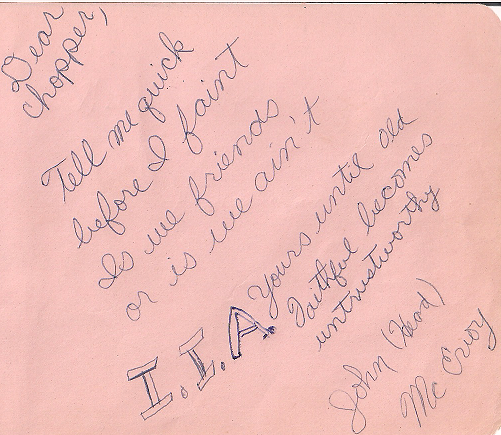 Dear
Chopper,
Tell me quick
before I faint
Is we friends
or is we ain't
Yours until old
Faithful becomes
untrustworthy
I.I.A.
John (Head)
McEvoy